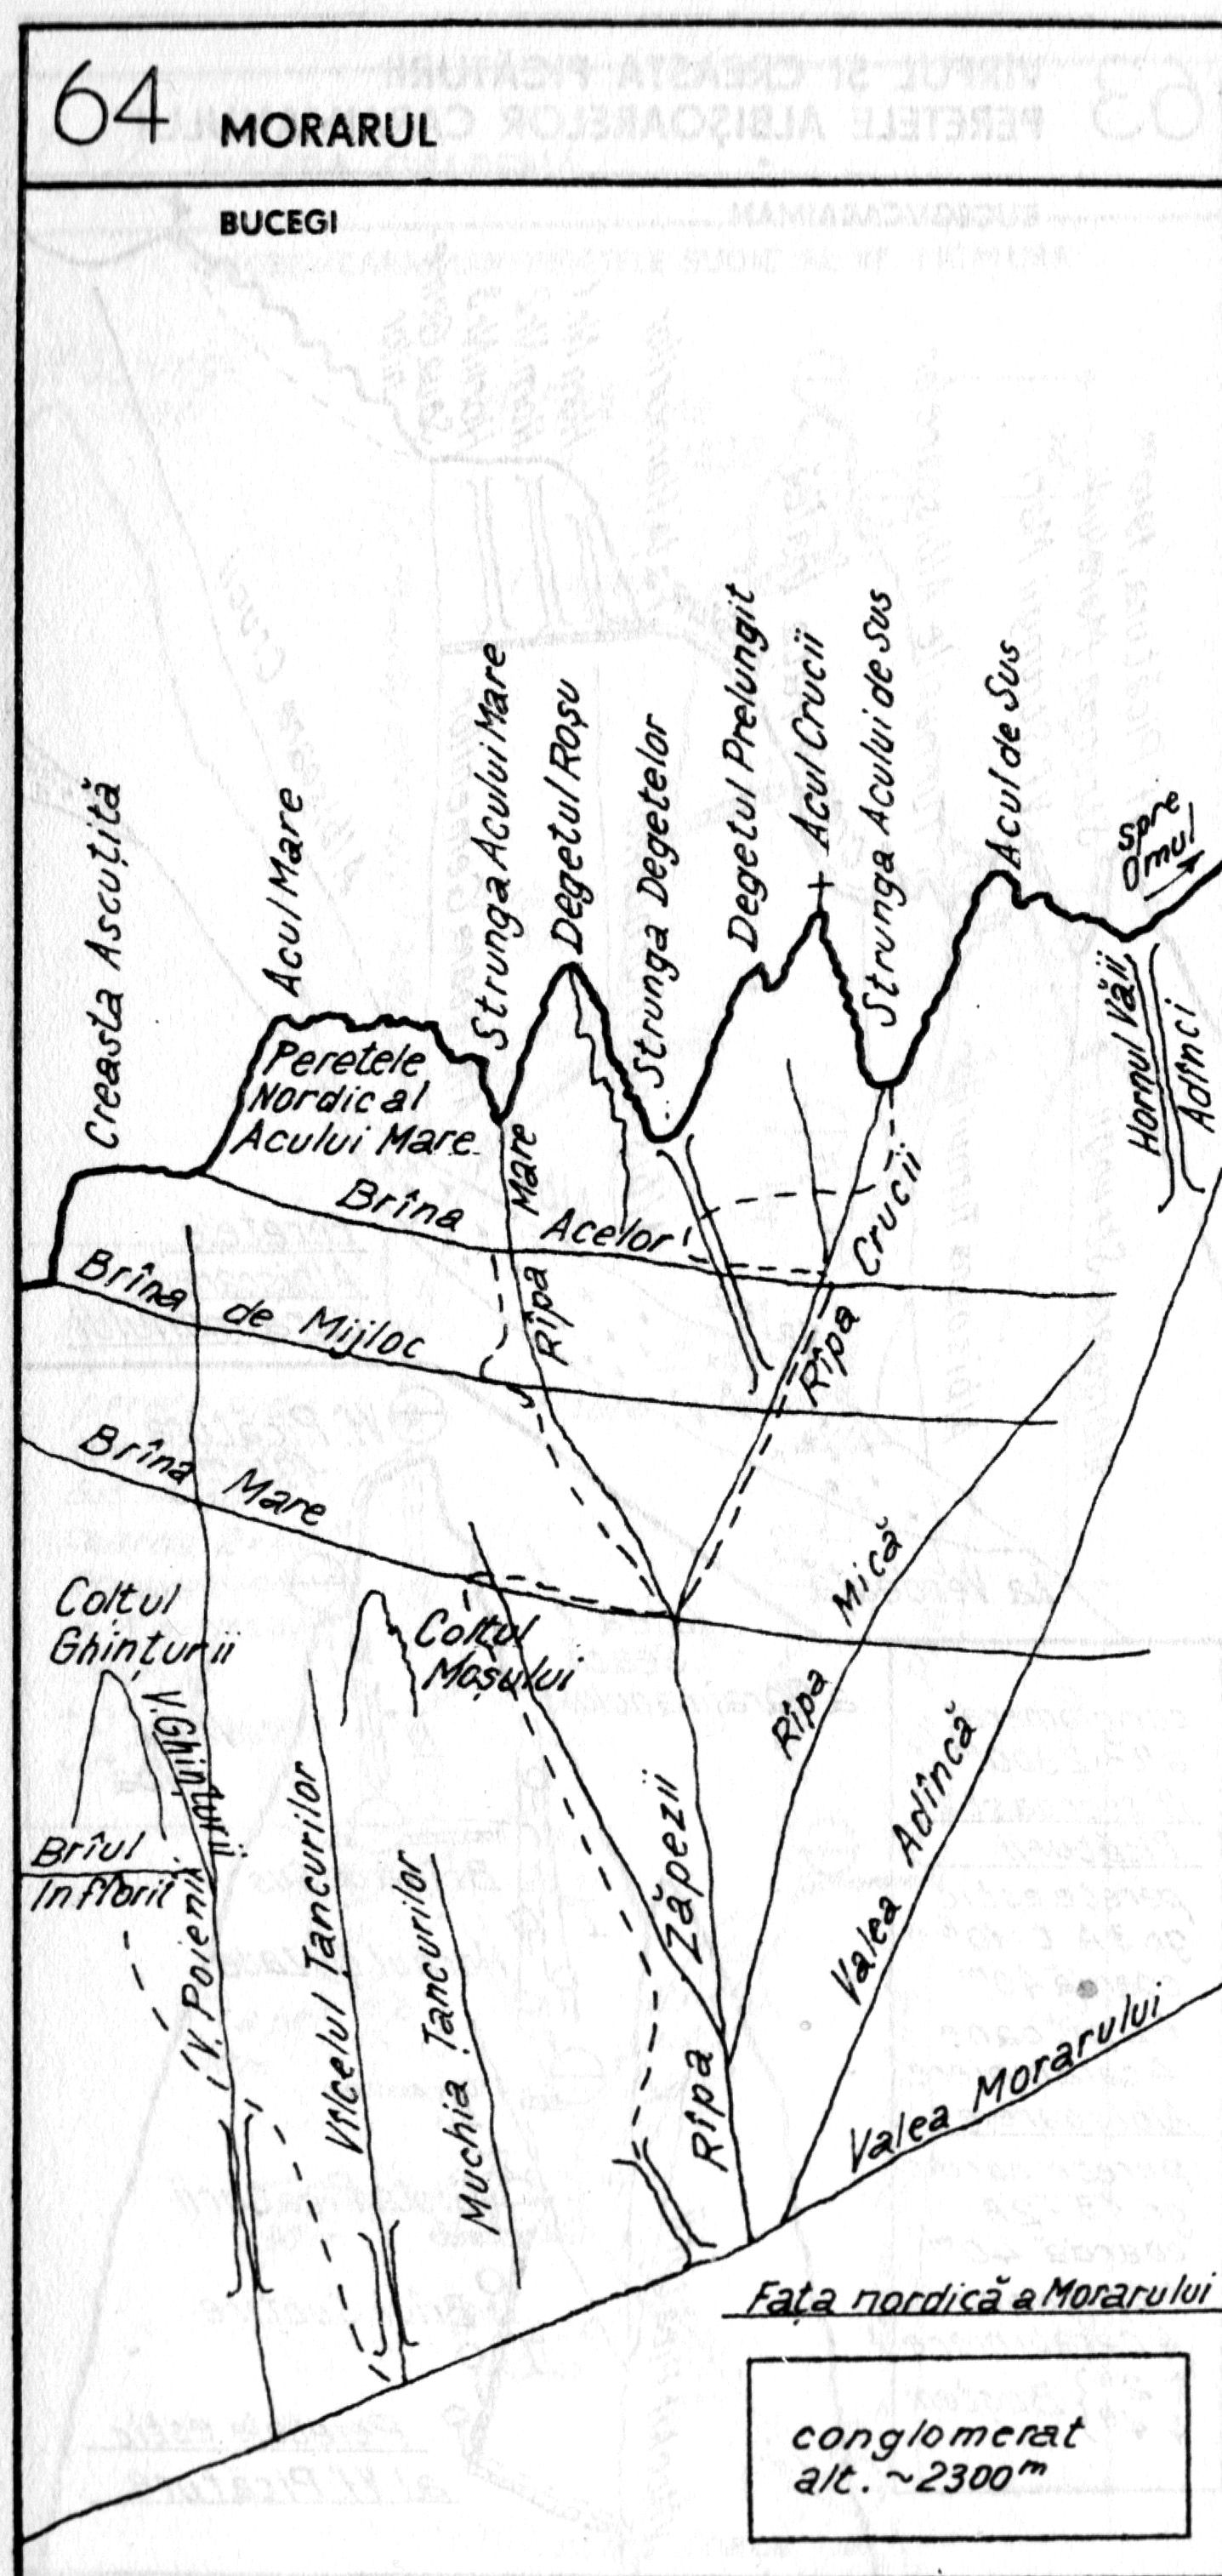 64 MORARUL
BUCEGI
Creasta Ascuțită
Acul Mare
Strunga Acului Mare
Degetul Roșu
Strunga Degetelor
Degetul Prelungit
Acul Crucii
Strunga Acului de Sus
Acul de Sus
Spre
Omul
Peretele
Nordic al
Acului Mare
Hornul Văii
Adînci
Brîna Acelor
Rîpa Mare
Rîpa Crucii
Brîna de Mijloc
Brîna Mare
Colțul
Ghințurii
Colțul
Moșului
V. Ghințurii
Brîul
Inflorit
V. Poienii
Vîlcelul Țancurilor
Muchia Țancurilor
Rîpa Zăpezii
Rîpa Mică
Valea Adîncă
Valea Morarului
Fața nordică a Morarului
conglomerat
alt. ~2300m